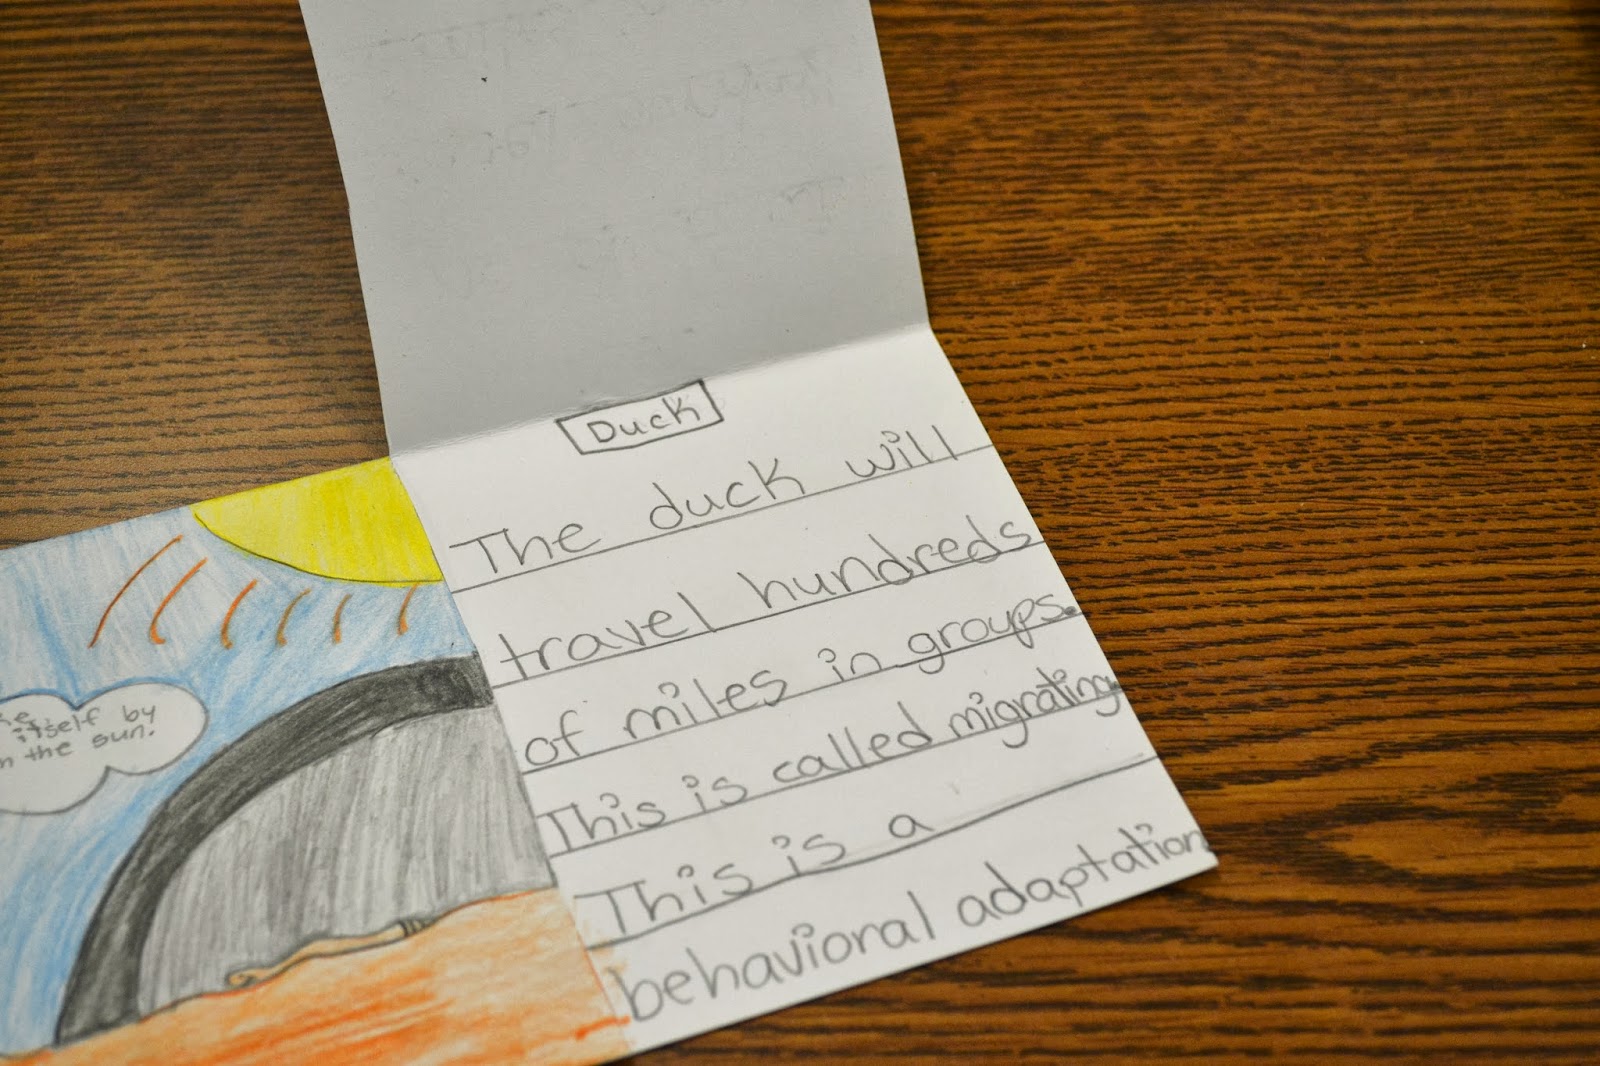 Duck
The duck will
travel hundreds
of miles in groups.
This is called migrating.
This is a
behavioral adaptation
itself by
the sun.